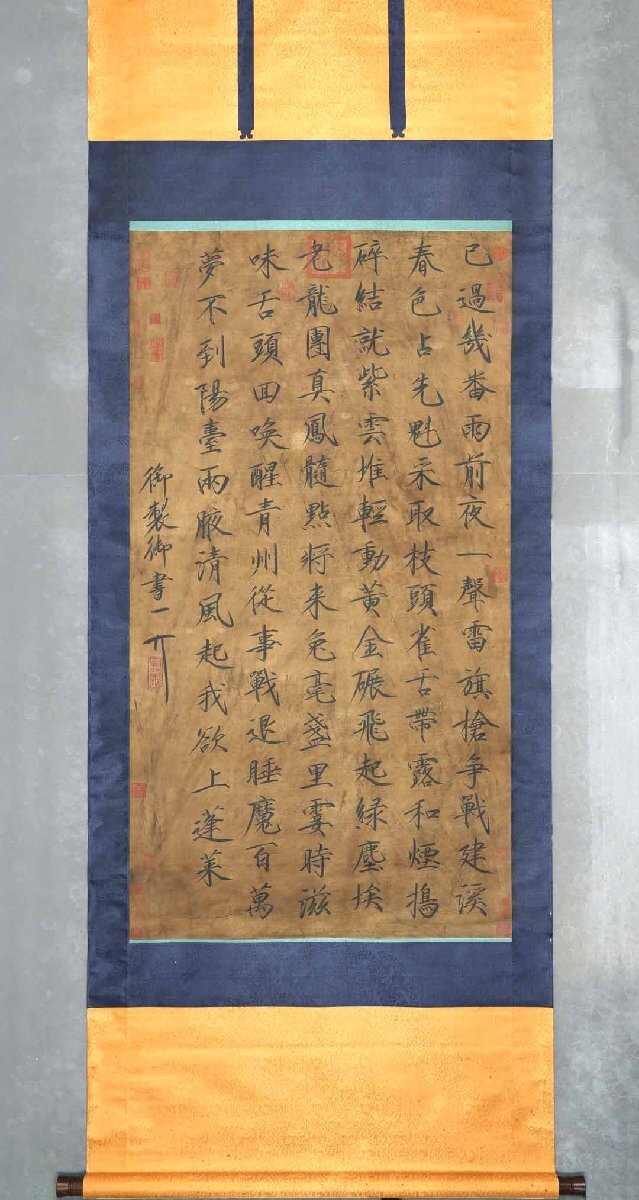 已過幾番雨前夜一聲雷旗槍争戰建溪
春色占先魁采取枝頭雀舌帶露和煙搗
碎結就紫雲堆輕動黄金碾飛起緑塵埃
老龍團真鳳髓點將来兔毫盞里霎時滋
味舌頭回喚醒青州從事戰退睡魔百萬
夢不到陽臺兩腋清風起我欲上蓬萊
御製御書一